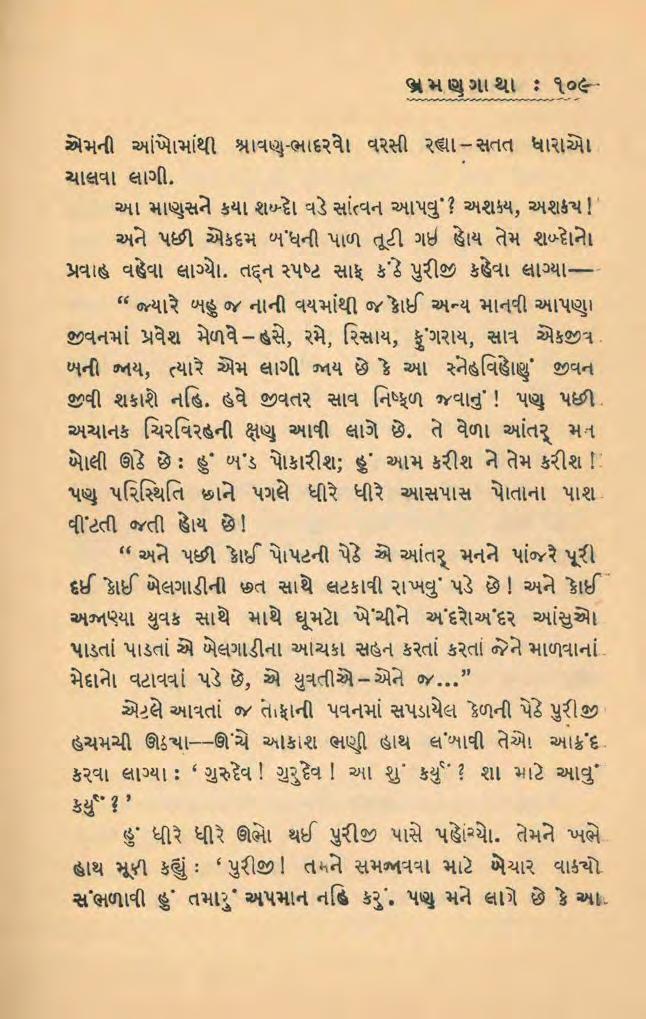 ભ્રમણગાથા : ૧૦૯
એમની આંખોમાંથી શ્રાવણ-ભાદરવો વરસી રહ્યા – સતત ધારાઓ
ચાલવા લાગી.
આ માણસને કયા શબ્દો વડે સાંત્વન આપવું? અશક્ય, અશક્ય!
અને પછી એકદમ બંધની પાળ તૂટી ગઈ હોય તેમ શબ્દોનો
પ્રવાહ વહેવા લાગ્યો. તદ્દન સ્પષ્ટ સાફ કંઠે પુરીજી કહેવા લાગ્યા—
“ જ્યારે બહુ જ નાની વયમાંથી જ કોઈ અન્ય માનવી આપણા
જીવનમાં પ્રવેશ મેળવે – હસે, રમે, રિસાય, ફુંગરાય, સાવ એકજીવ
બની જાય, ત્યારે એમ લાગી જાય છે કે આ સ્નેહવિહોણું જીવન
જીવી શકાશે નહિ. હવે જીવતર સાવ નિષ્ફળ જવાનું! પણ પછી
અચાનક ચિરવિરહની ક્ષણ આવી લાગે છે. તે વેળા આંતર્ મન
બોલી ઊઠે છે : હું બંડ પોકારીશ; હું આમ કરીશ ને તેમ કરીશ!
પણ પરિસ્થિતિ છાને પગલે ધીરે ધીરે આસપાસ પોતાના પાશ
વીંટતી જતી હોય છે!
“ અને પછી કોઈ પોપટની પેઠે એ આંતર્ મનને પાંજરે પૂરી
દઈ કોઈ બેલગાડીની છત સાથે લટકાવી રાખવું પડે છે! અને કોઈ
અજાણ્યા યુવક સાથે માથે ઘૂમટો ખેંચીને અંદરોઅંદર આંસુઓ
પાડતાં પાડતાં એ બેલગાડીના આંચકા સહન કરતાં કરતાં જેને માળવાનાં
મેદાનો વટાવવાં પડે છે, એ યુવતીએ – એને જ...”
એટલે આવતાં જ તોફાની પવનમાં સપડાયેલ કેળની પેઠે પુરીજી
હચમચી ઊઠ્યા——ઊંચે આકાશ ભણી હાથ લંબાવી તેઓ આક્રંદ
કરવા લાગ્યા : ‘ ગુરુદેવ! ગુરુદેવ! આ શું કર્યું? શા માટે આવું
કર્યું? ’
હું ધીરે ધીરે ઊભો થઈ પુરીજી પાસે પહોંચ્યો. તેમને ખભે
હાથ મૂકી કહ્યું : ‘ પુરીજી! તમને સમજાવવા માટે બેચાર વાક્યો
સંભળાવી હું તમારું અપમાન નહિ કરું. પણ મને લાગે છે કે આ